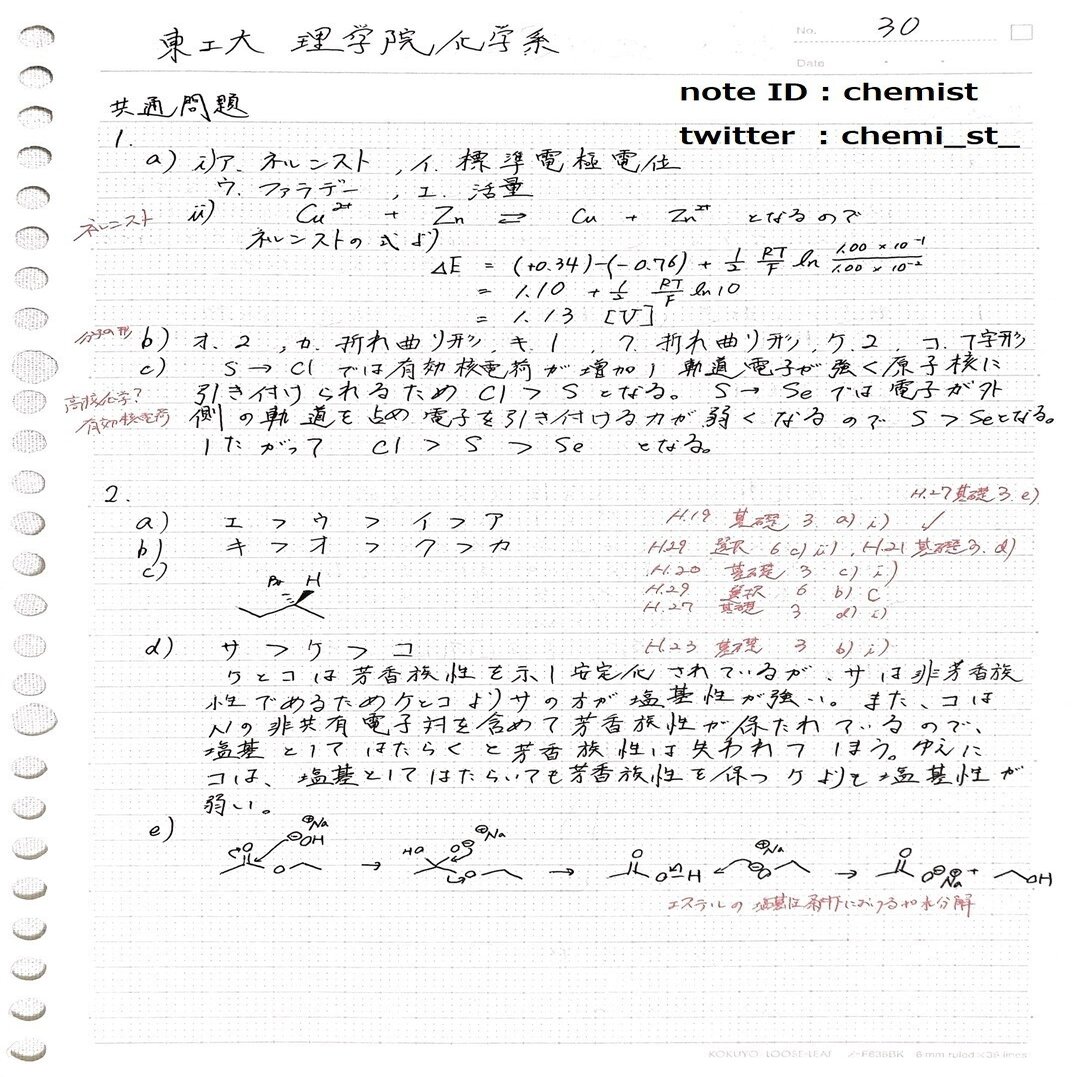 東工大 理学院化学系
No. 30
Date
note ID : chemist
twitter : chemi_st_
共通問題
1.
a) i) ア. ネルンスト , イ. 標準電極電位
ウ. ファラデー , エ. 活量
ネルンスト
ii) Cu²⁺ + Zn ⇌ Cu + Zn²⁺ となるので
ネルンストの式より
ΔE = (+0.34)-(-0.76) + 1/2 RT/F ln 1.00 × 10⁻¹/1.00 × 10⁻²
= 1.10 + 1/2 RT/F ln10
= 1.13 [V]
分子の形
b) オ. 2 , カ. 折れ曲り形, キ. 1 , ク. 折れ曲り形, ケ. 2 , コ. T字形
c) S → Cl では有効核電荷が増加し軌道電子が強く原子核に
引き付けられるため Cl > S となる。 S → Se では電子が外
高校化学?
側の軌道を占め電子を引き付ける力が弱くなるので S > Seとなる。
有効核電荷
したがって Cl > S > Se となる。
2.
H.27 基礎 3. e)
a) エ > ウ > イ > ア
H.19 基礎 3. a) i) ✓
b) キ > オ > ク > カ
H.29 選択 6 c) ii) , H.21 基礎 3. d)
c)
H.20 基礎 3 c) i)
Br H
H.29 選択 6 b) C
H.27 基礎 3 d) i)
d) サ > ケ > コ
H.23 基礎 3 b) i)
ケとコは芳香族性を示し安定化されているが、サは非芳香族
性であるためケとコよりサの方が塩基性が強い。また、コは
Nの非共有電子対を含めて芳香族性が保たれているので、
塩基としてはたらくと芳香族性は失われてしまう。ゆえに
コは、塩基としてはたらいても芳香族性を保つケよりも塩基性が
弱い。
e)
O ⊖OH ⊕Na O → HO O⊖ ⊕Na O → O O-H ⊖O ⊕Na → O O⊖ ⊕Na + OH
エステルの塩基性条件における加水分解
KOKUYO LOOSE-LEAF ノ-F836BK 6 mm ruled × 39 lines